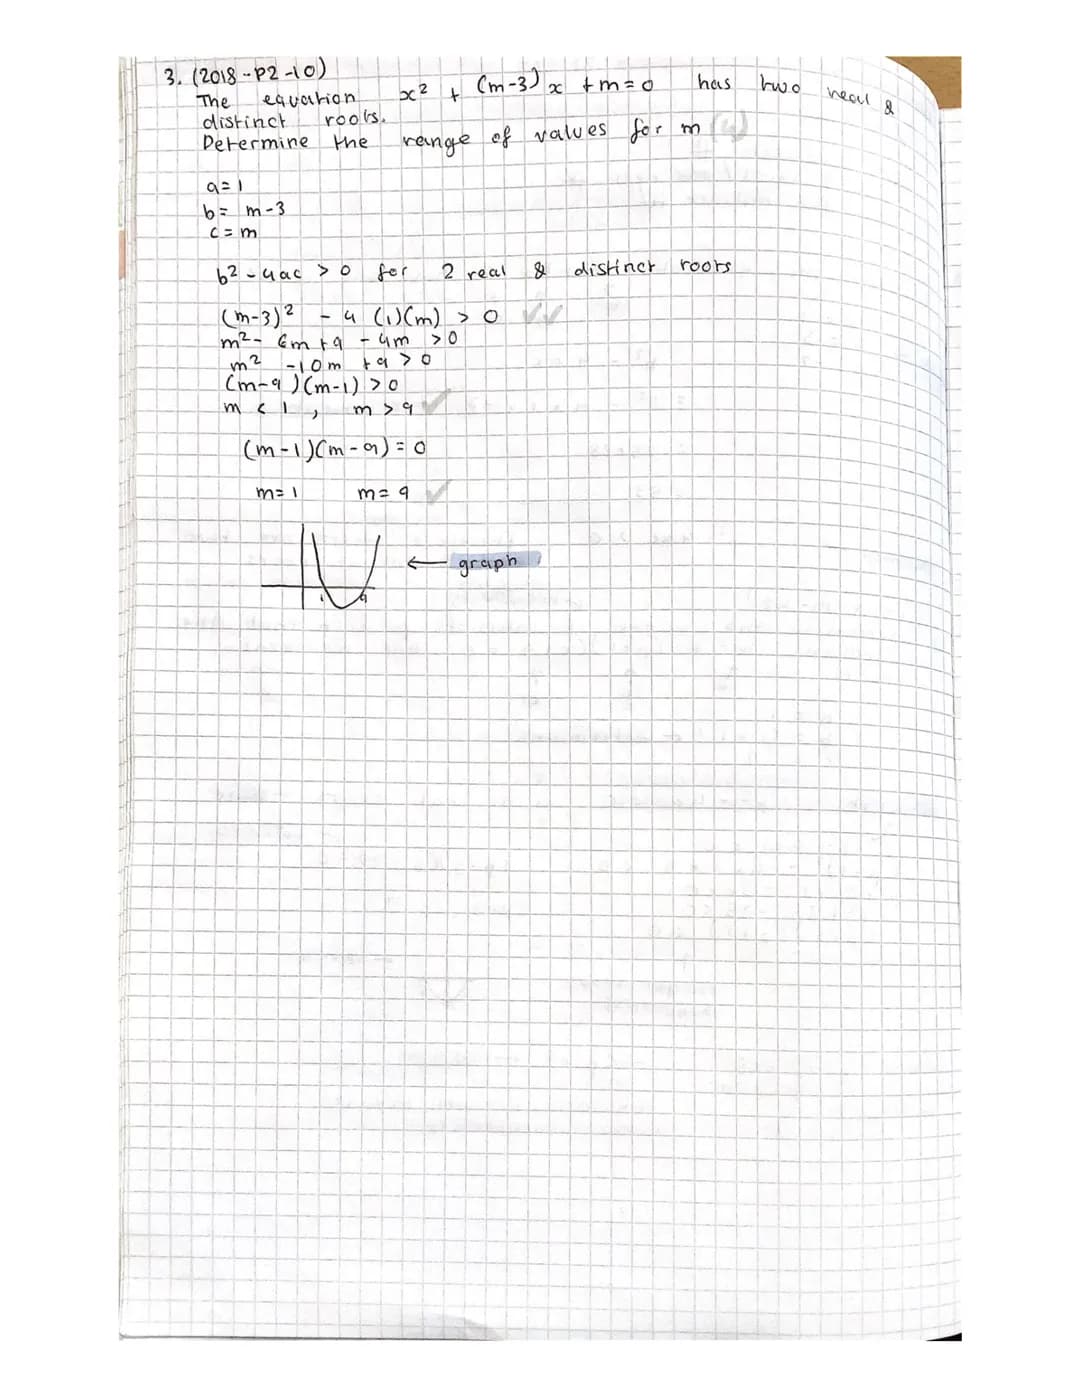 3. (2018-P2-10)
The equation x² + (m-3)x + m = 0 has two real &
distinct roots.
Determine the range of values for m (4)
a = 1
b = m-3
c = m
b² - 4ac > 0 for 2 real & distinct roots
(m-3)² - 4 (1)(m) > 0 ✓✓
m² - 6m + 9 - 4m > 0
m² - 10m + 9 > 0
(m-9)(m-1) > 0
m < 1, m > 9 ✓
(m-1)(m-9) = 0
m = 1 m = 9 ✓
← graph
1 9